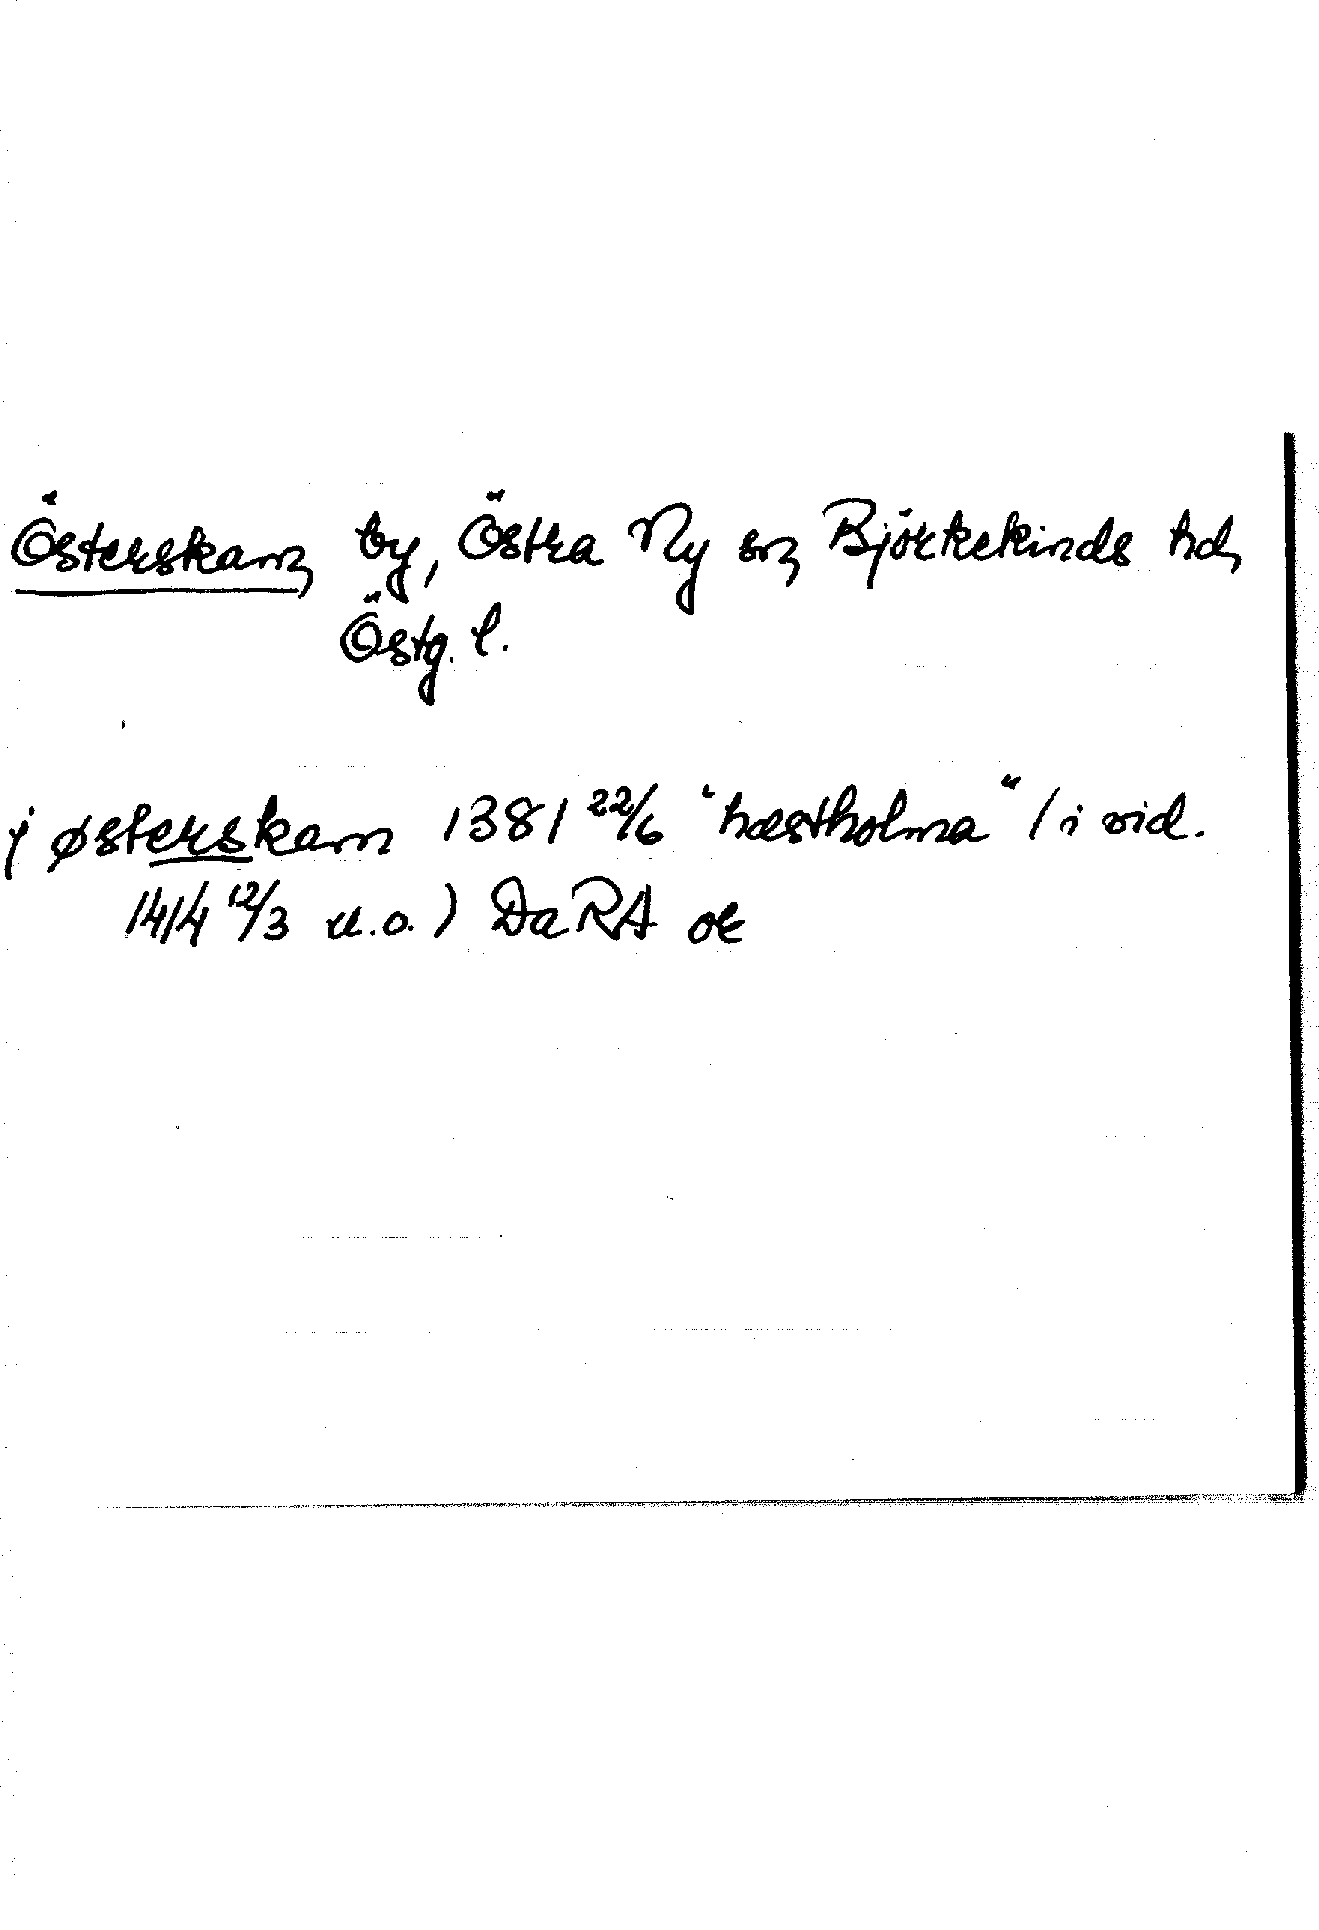 Österskam, by, Östra Ny sn, Björkekinds hd,
Östg. l.
j østerskam 1381 22/6 "hæstholma" (i vid.
1414 12/3 u.o.) DaRA or